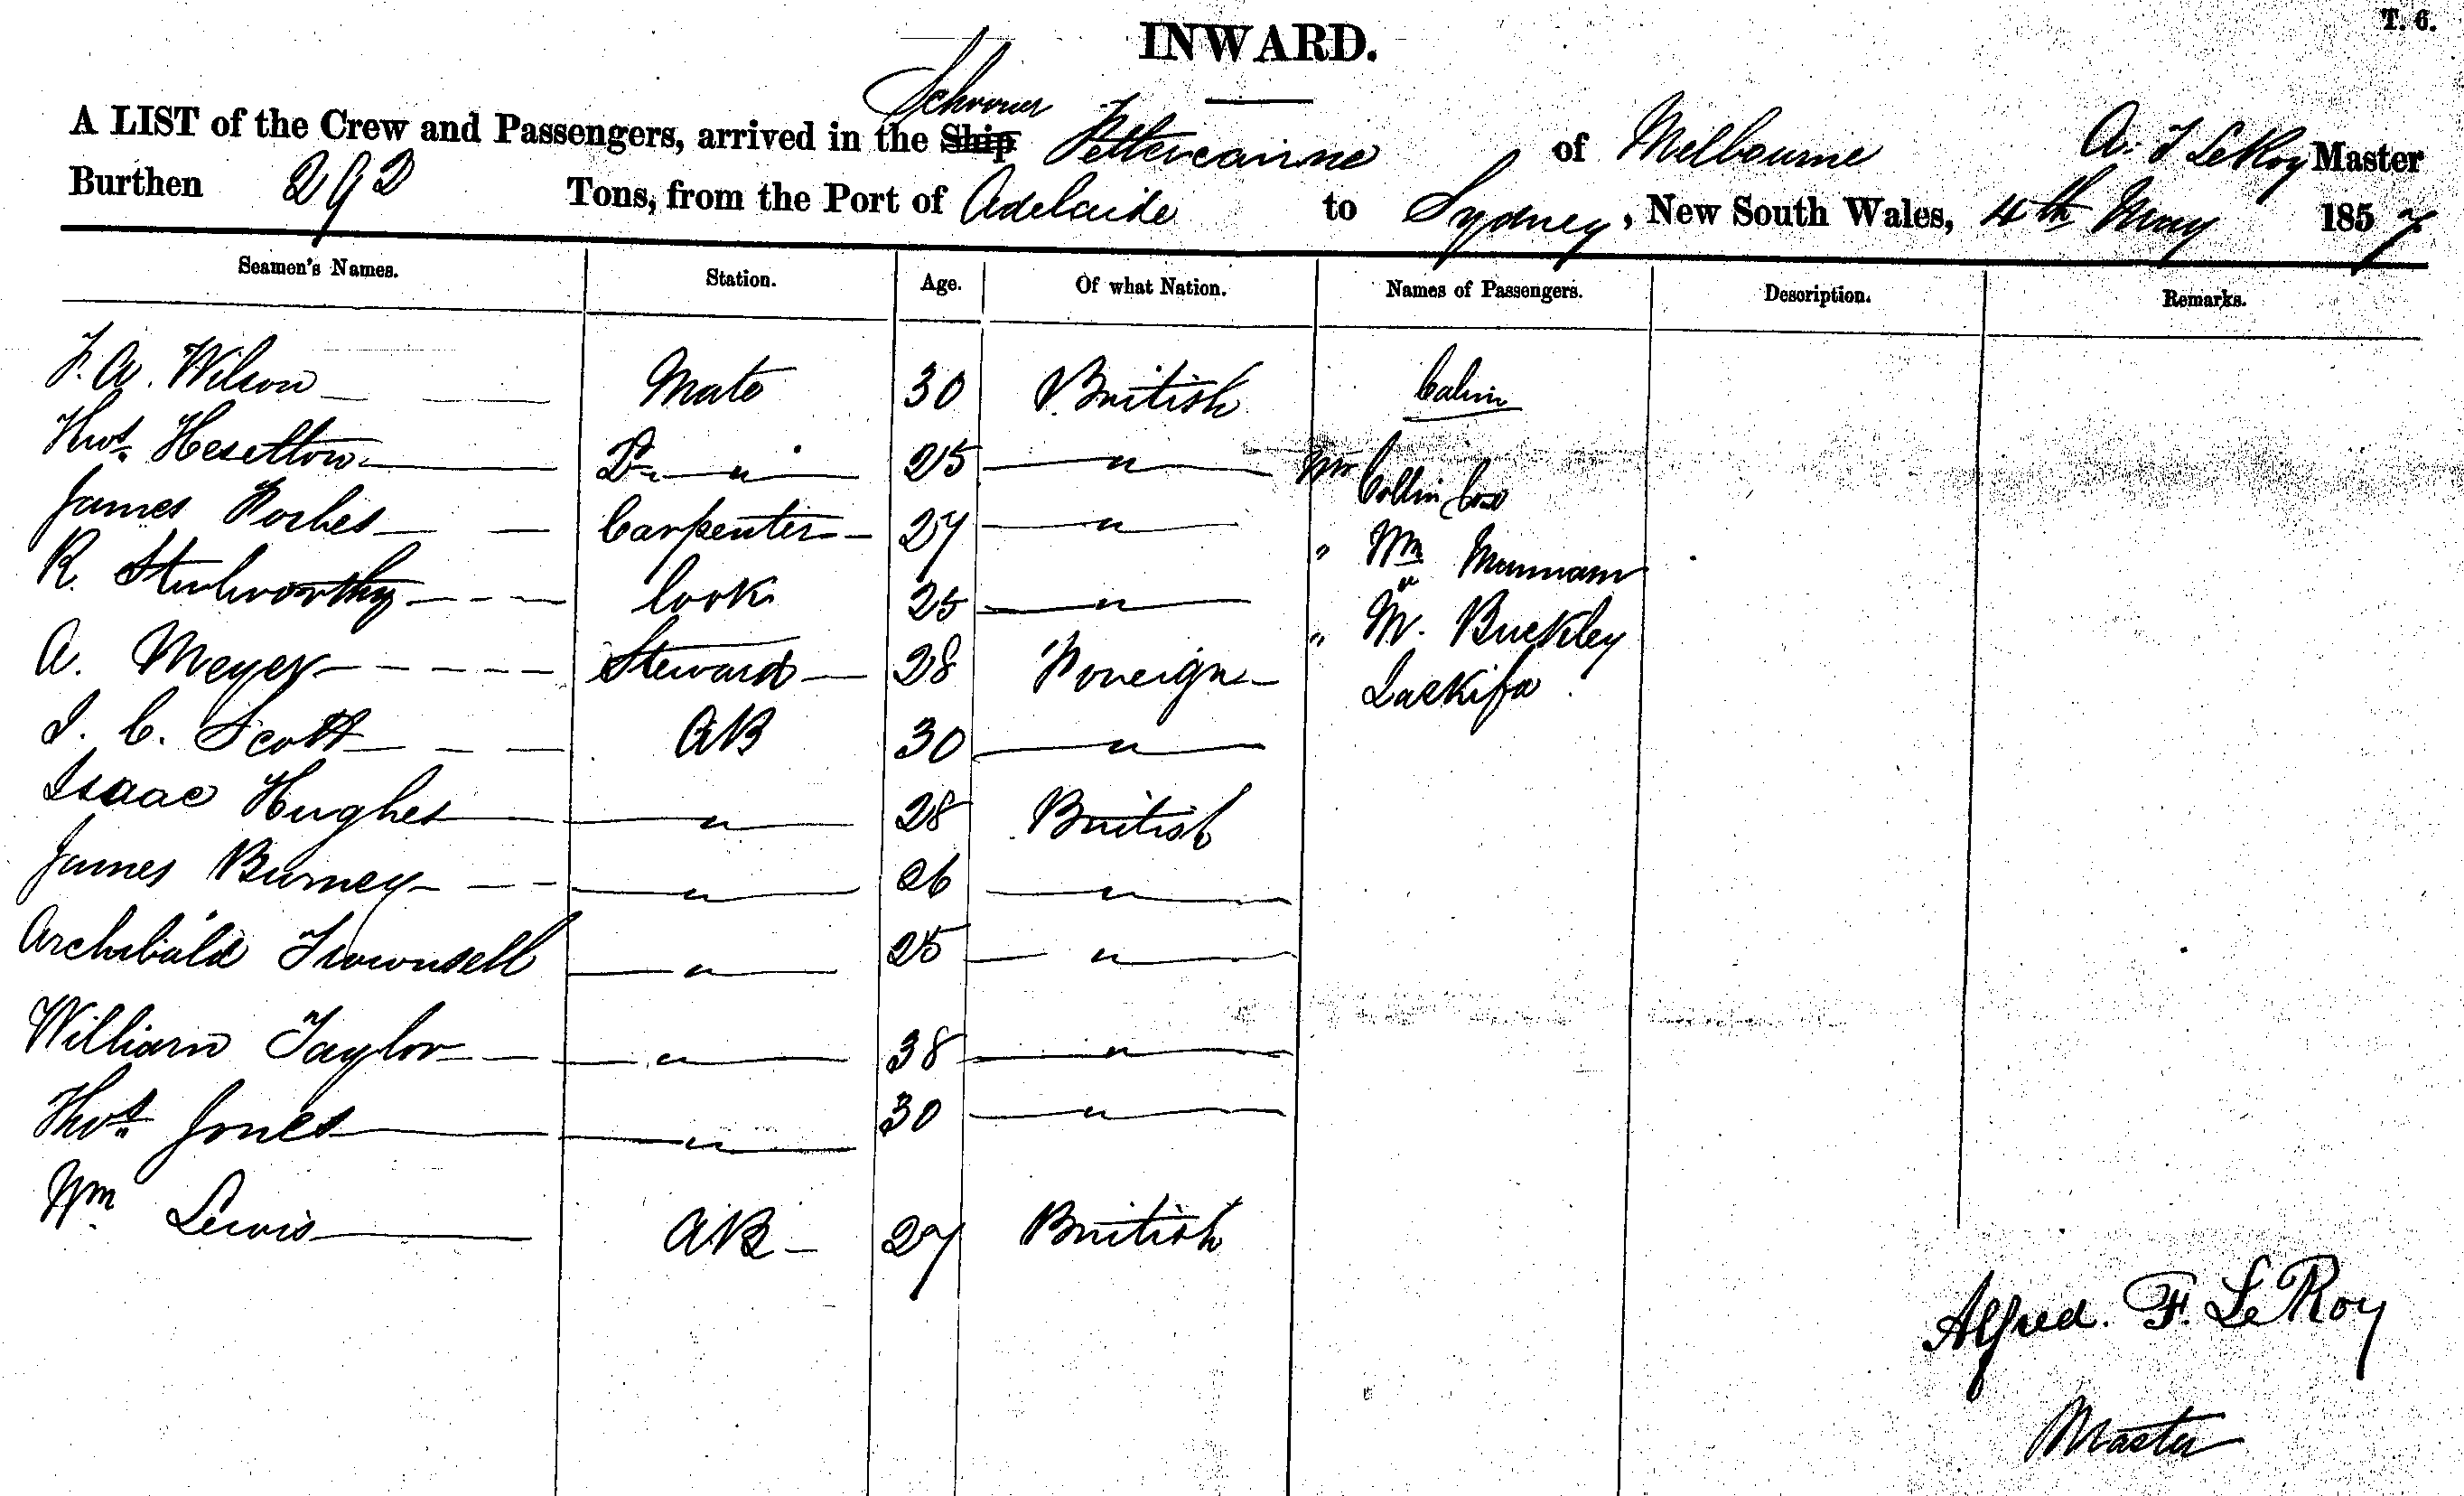 T. 6.
INWARD.
Schooner
A LIST of the Crew and Passengers, arrived in the Ship Fettercairne of Melbourne A. F LeRoy Master
Burthen 292 Tons, from the Port of Adelaide to Sydney, New South Wales, 4th May 1857
Seamen's Names. Station. Age. Of what Nation. Names of Passengers. Description. Remarks.
F. A. Wilson Mate 30 British Cabin
Thos. Do " 25 " Mr Collin
James Forbes Carpenter 27 "
R. Cook 25 " " Wm
A. Meyer Steward 28 Foreign " M. Buckley
J. C. Scott AB 30 "
Isaac Hughes " 28 British
James Burney " 26 "
Archibald " 25 "
William Taylor " 38 "
Thos. Jones " 30 "
Wm Lewis AB 27 British
Alfred. F. LeRoy
Master